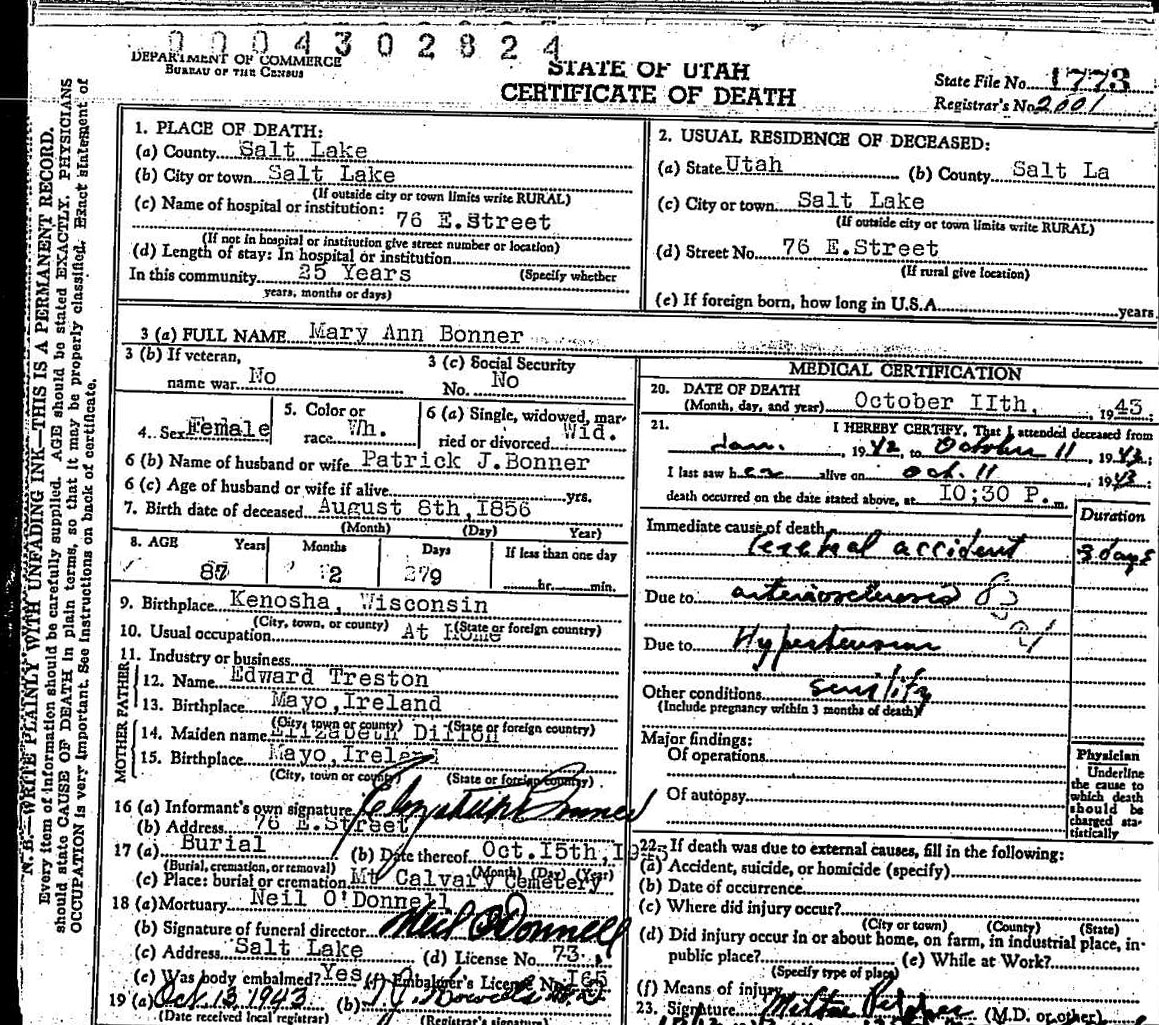 0004302824
DEPARTMENT OF COMMERCE
BUREAU OF THE CENSUS
STATE OF UTAH
CERTIFICATE OF DEATH
State File No. 1773
Registrar's No. 2001
N. B.—WRITE PLAINLY WITH UNFADING INK—THIS IS A PERMANENT RECORD.
Every item of information should be carefully supplied. AGE should be stated EXACTLY. PHYSICIANS
should state CAUSE OF DEATH in plain terms, so that it may be properly classified. Exact statement of
OCCUPATION is very important. See Instructions on back of certificate.
1. PLACE OF DEATH:
(a) County Salt Lake
(b) City or town Salt Lake
(If outside city or town limits write RURAL)
(c) Name of hospital or institution:
76 E.Street
(If not in hospital or institution give street number or location)
(d) Length of stay: In hospital or institution
In this community 25 Years (Specify whether
years, months or days)
2. USUAL RESIDENCE OF DECEASED:
(a) State Utah (b) County Salt La
(c) City or town Salt Lake
(If outside city or town limits write RURAL)
(d) Street No. 76 E.Street
(If rural give location)
(e) If foreign born, how long in U.S.A. years
3 (a) FULL NAME Mary Ann Bonner
3 (b) If veteran,
name war No
3 (c) Social Security
No. No
4. Sex Female
5. Color or
race Wh.
6 (a) Single, widowed, mar-
ried or divorced Wid.
6 (b) Name of husband or wife Patrick J.Bonner
6 (c) Age of husband or wife if alive yrs.
7. Birth date of deceased August 8th,I856
(Month) (Day) Year)
8. AGE Years Months Days If less than one day
87 2 hr. min.
9. Birthplace Kenosha, Wisconsin
(City, town, or county) (State or foreign country)
10. Usual occupation At Home
11. Industry or business
FATHER
12. Name Edward Treston
13. Birthplace Mayo,Ireland
(City, town or county) (State or foreign country)
MOTHER
14. Maiden name Elizabeth Dillon
15. Birthplace Mayo,Ireland
(City, town or county) (State or foreign country)
16 (a) Informant's own signature Elizabeth Bonner
(b) Address 76 E.Street
17 (a) Burial (b) Date thereof Oct.I5th,I943
(Burial, cremation, or removal) (Month) (Day) (Year)
(c) Place: burial or cremation Mt Calvary Cemetery
18 (a) Mortuary Neil O'Donnell
(b) Signature of funeral director Neil O'Donnell
(c) Address Salt Lake (d) License No. 73
(e) Was body embalmed? Yes (f) Embalmer's License No. I65
19 (a) Oct. 13 1943 (b)
(Date received local registrar) (Registrar's signature)
MEDICAL CERTIFICATION
20. DATE OF DEATH
(Month, day, and year) October IIth, 1943;
21. I HEREBY CERTIFY, That I attended deceased from
Jan. 1942, to October 11, 1943;
I last saw her alive on Oct. 11, 1943;
death occurred on the date stated above, at I0;30 P. m.
Duration
Immediate cause of death
Cerebral accident 3 days
Due to arteriosclerosis
Due to Hypertension
Other conditions senility
(Include pregnancy within 3 months of death)
Major findings:
Of operations
Of autopsy
Physician
Underline
the cause to
which death
should be
charged sta-
tistically
22. If death was due to external causes, fill in the following:
(a) Accident, suicide, or homicide (specify)
(b) Date of occurrence
(c) Where did injury occur?
(City or town) (County) (State)
(d) Did injury occur in or about home, on farm, in industrial place, in-
public place? (e) While at Work?
(Specify type of place)
(f) Means of injury
23. Signature Milton Pepper (M.D. or other)